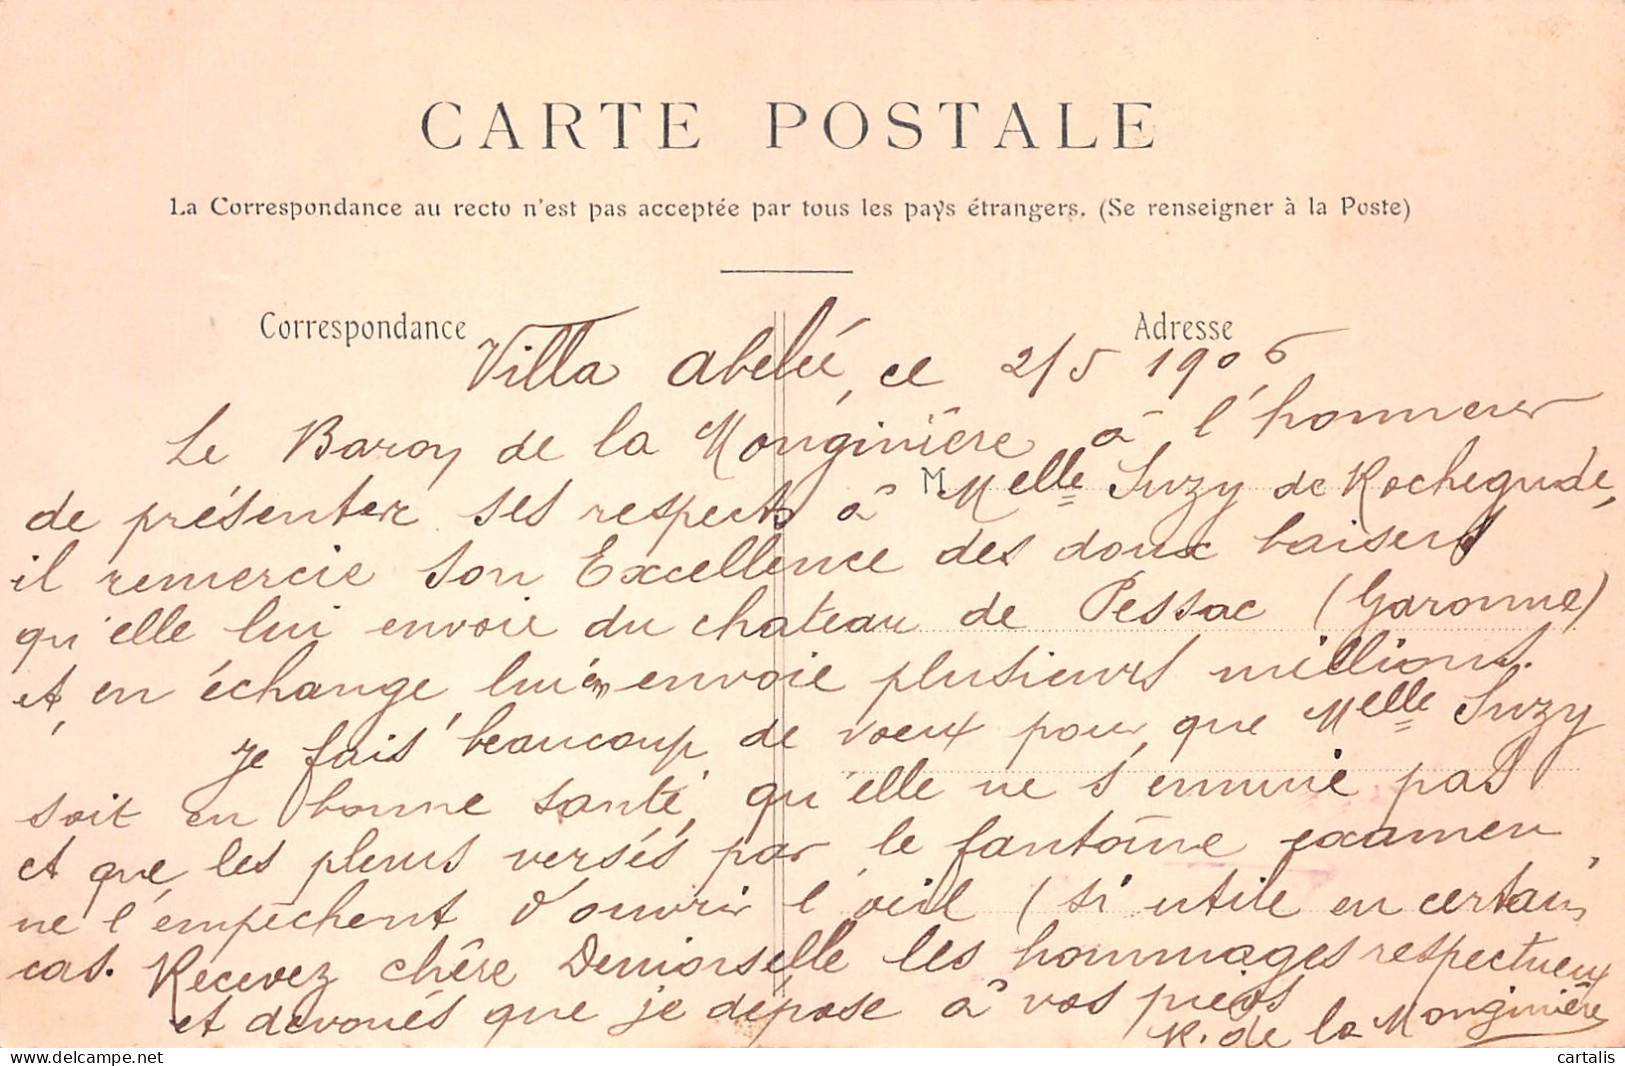 CARTE POSTALE
La Correspondance au recto n'est pas acceptée par tous les pays étrangers. (Se renseigner à la Poste)
Correspondance
Adresse
Villa abelée, ce 2/5 1906
Le Baron de la Monginière à l'honneur
M
de présenter ses respects à Melle Suzy de Rochegude,
il remercie Son Excellence des doux baisers
qu'elle lui envoie du chateau de Pessac (Garonne)
et, en échange, lui en envoie plusieurs millions.
Je fais beaucoup de voeux pour que Melle Suzy
soit en bonne santé, qu'elle ne s'ennuie pas
et que les pleurs versés par le fantôme examen
ne l'empêchent d'ouvrir l'oeil (si utile en certain
cas. Recevez chère Demoiselle les hommages respectueux
et dévoués que je dépose à vos pieds
R. de la Monginière
cartalis